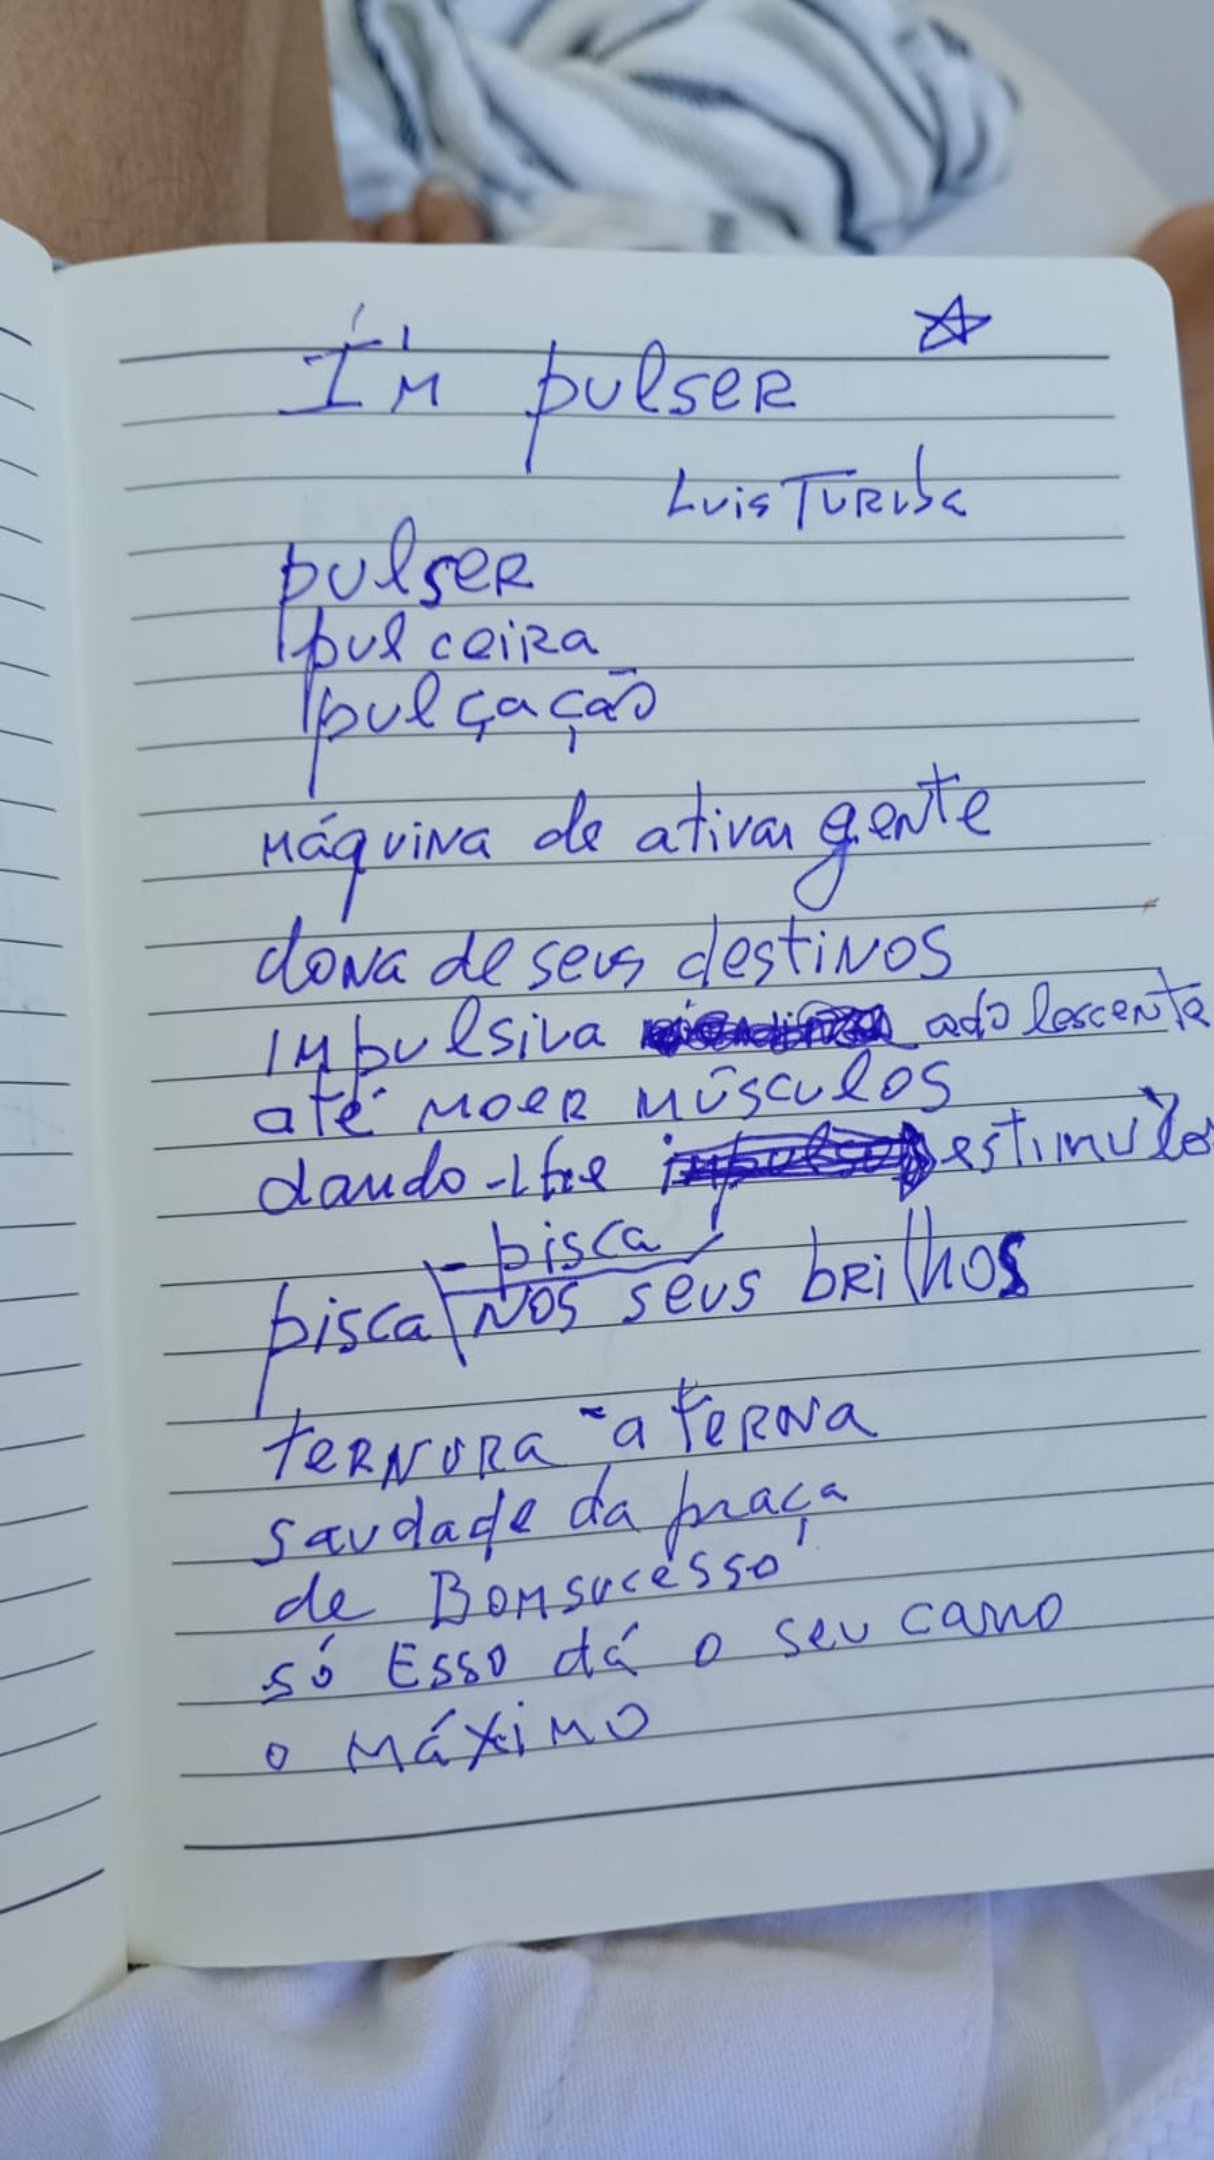 I'm pulser
Luis Turiba
pulser
pulceira
pulçação
máquina de ativar gente
dona de seus destinos
impulsiva adolescente
até moer músculos
dando-lhe estimulos
pisca - pisca
nos seus brilhos
ternura - a terna
saudade da praça
de Bomsucesso
só Esso dá o seu carro
o máximo